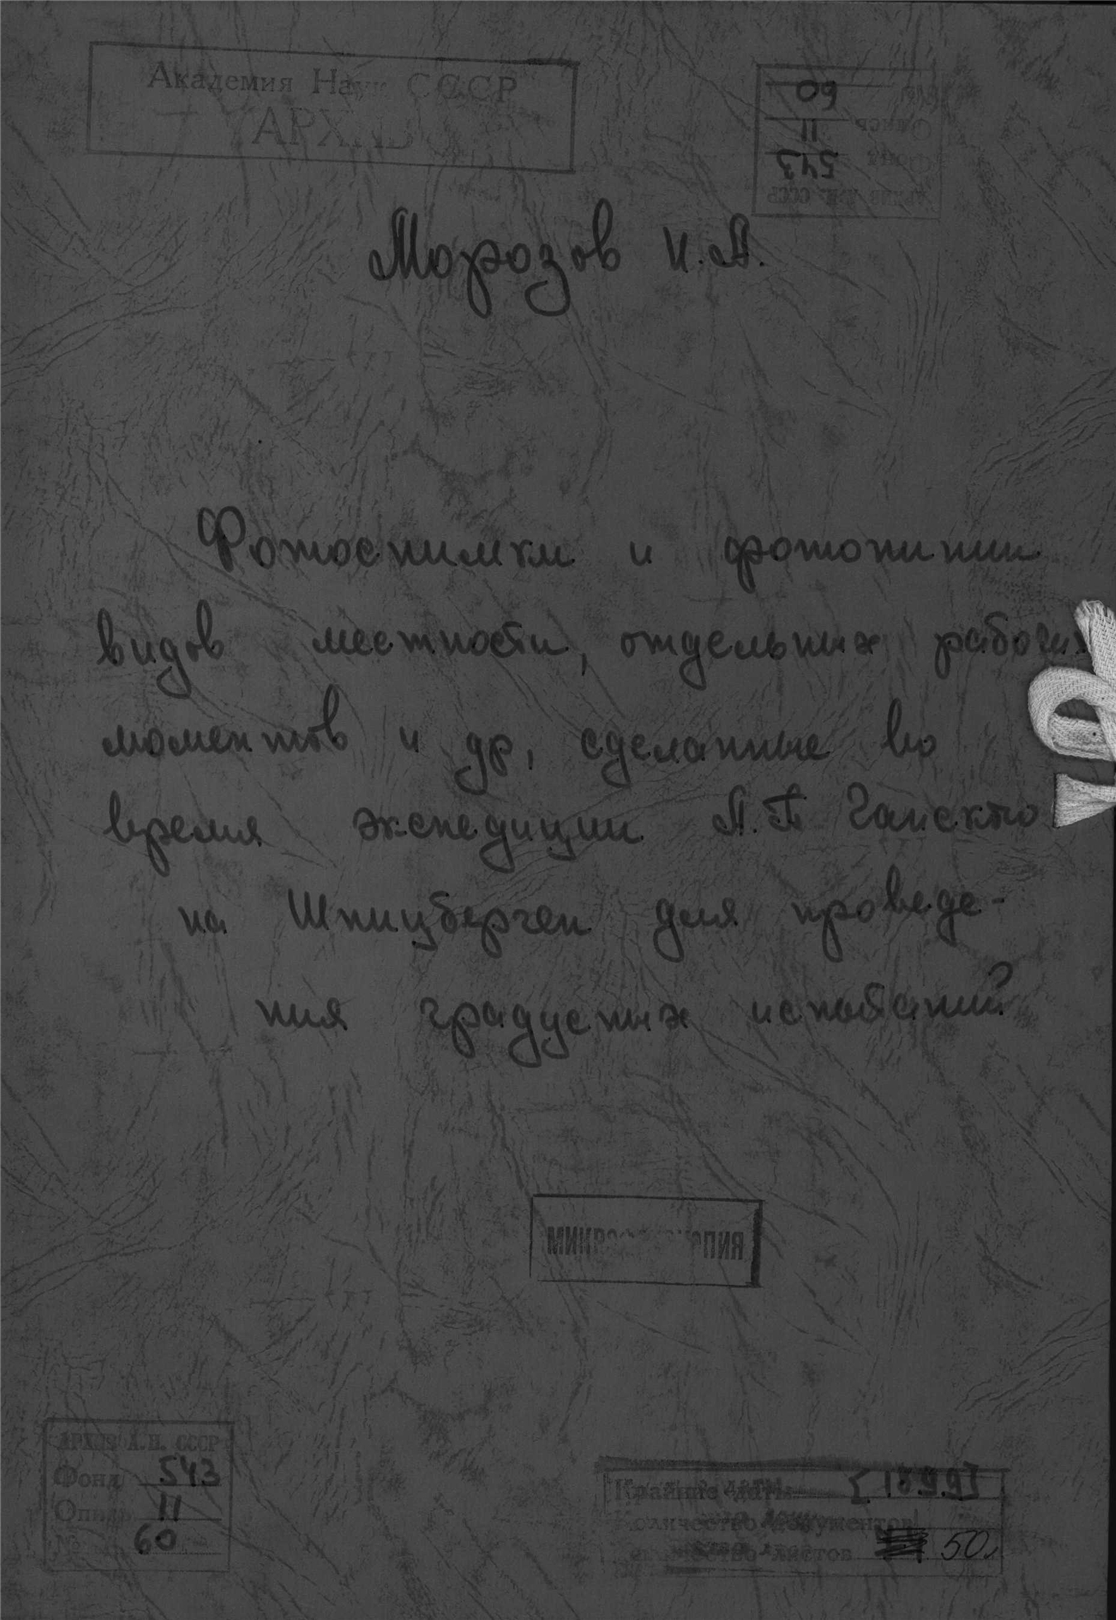 Академия Наук СССР
АРХИВ
№ 60
Опись 11
Фонд 543
АРХИВ А.Н. СССР
Морозов Н.А.
Фотоснимки и фотопинии
видов местности, отдельных рабочих
моментов и др, сделанные во
время экспедиции А.П Ганского
на Шпицберген для проведе-
ния градусных испытаний
МИКРОФОТОКОПИЯ
АРХИВ А.Н. СССР
Фонд 543
Опись 11
№ 60
Крайние даты [1899]
Количество документов
Количество листов 50л